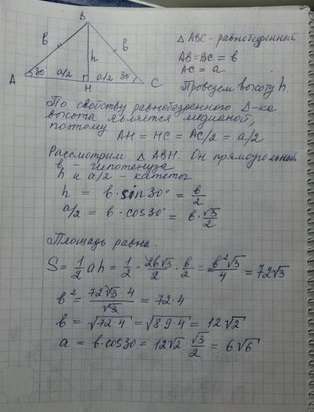 B
△ABC - равнобедренный
AB=BC = в
AC = a
Проведем высоту h
в h в
A 30 a/2 H a/2 30 C
По свойству равнобедренного Δ-ка
высота является медианой,
поэтому
AH = HC = AC/2 = a/2
Рассмотрим △ABH. Он прямоугольный
в - гипотенуза
h и a/2 - катеты
h = в·sin30° = в/2
a/2 = в·cos30° = в·√3/2
Площадь равна:
S = 1/2 ah = 1/2 · 2в√3/2 · в/2 = в²√3/4 = 72√3
в² = 72√3·4/√3 = 72·4
в = √72·4 = √8·9·4 = 12√2
a = в·cos30 = 12√2 · √3/2 = 6√6